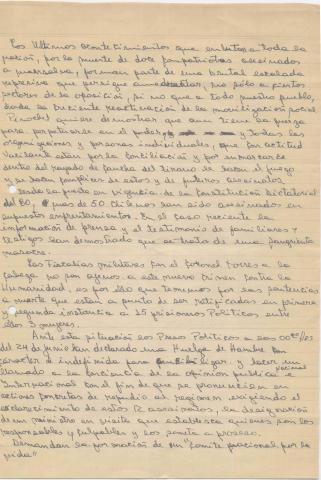 Los Ultimos acontecimientos que enlutan a toda la
nación, por la muerte de doce compatriotas asesinados
a mansalva, forman parte de una brutal escalada
represiva que persigue amedrentar, no sólo a ciertos
sectores de la oposición, si no que a todo nuestro pueblo,
dada la creciente reactivación de la movilización social.
Pinochet quiere demostrar que aun tiene la fuerza
para perpetuarse en el poder, y todas las
organizaciones y personas individuales, que con actitud
vacilante estan por la conciliación y por enmarcarse
dentro del rayado de cancha del tirano le hacen el juego
y se hacen complices de estos y de futuros asesinatos.
Desde la puesta en vigencia de la constitución dictatorial
del 80, mas de 50 Chilenos han sido asesinados en
supuestos enfrentamientos. En el caso reciente la
información de prensa y el testimonio de familiares y
testigos han demostrado que se trata de una sangrienta
masacre.
Las Fiscalias militares con el coronel Torres a la
cabeza no son ajenas a este nuevo crimen contra la
Humanidad, es por ello que tememos por las sentencias
a muerte que estan a punto de ser ratificadas en primera
y segunda instancia a 15 prisioneros Politicos entre
ellos 3 mujeres.
Ante esta situación los Presos Politicos a las 00:00 hrs
del 24 de Junio han declarado una Huelga de Hambre con
caracter de indefinida y hacen un
llamado a la conciencia de la opinión publica Nacional
e Internacional con el fin de que se pronuncien en
acciones concretas de repudio al regimen exigiendo el
esclarecimiento de estos 12 asesinatos, la designación
de un ministro en visita que establezca quienes son los
responsables y culpables y los someta a proceso.
Demandan la formación de un "Comite nacional por la
vida"